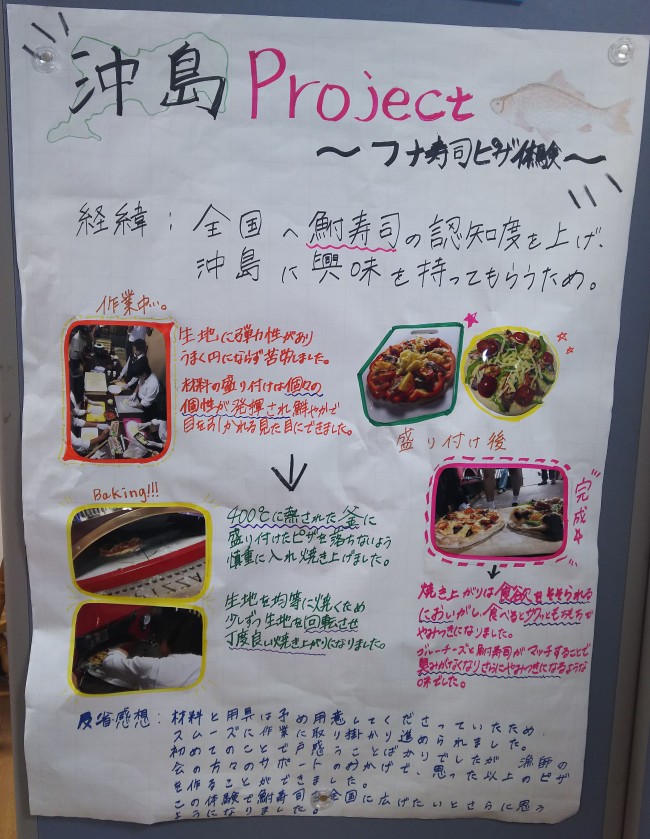 沖島 Project
～フナ寿司ピザ体験～
経緯：全国へ鮒寿司の認知度を上げ、
沖島に興味を持ってもらうため。
作業中…。
生地に弾力性があり
うまく円にならず苦労しました。
材料の盛り付けは個々の
個性が発揮され鮮やかで
目を引かれる見た目にできました。
盛り付け後
Baking!!!
400℃に熱された釜に
盛り付けたピザを落ちないよう
慎重に入れ焼き上げました。
生地を均等に焼くため
少しずつ生地を回転させ
丁度良い焼き上がりになりました。
完成
焼き上がりは食欲をそそられる
においがし、食べるとサクッともちもちで
やみつきになりました。
ブルーチーズと鮒寿司がマッチすることで
臭みがなくなりさらにやみつきになるような
味でした。
反省感想：材料と用具は予め用意してくださっていたため、
スムーズに作業に取り掛かり進められました。
初めてのことで戸惑うことばかりでしたが 漁師の
会の方々のサポートのおかげで、思った以上のピザ
を作ることができました。
この体験で鮒寿司を全国に広げたいとさらに思う
ようになりました。